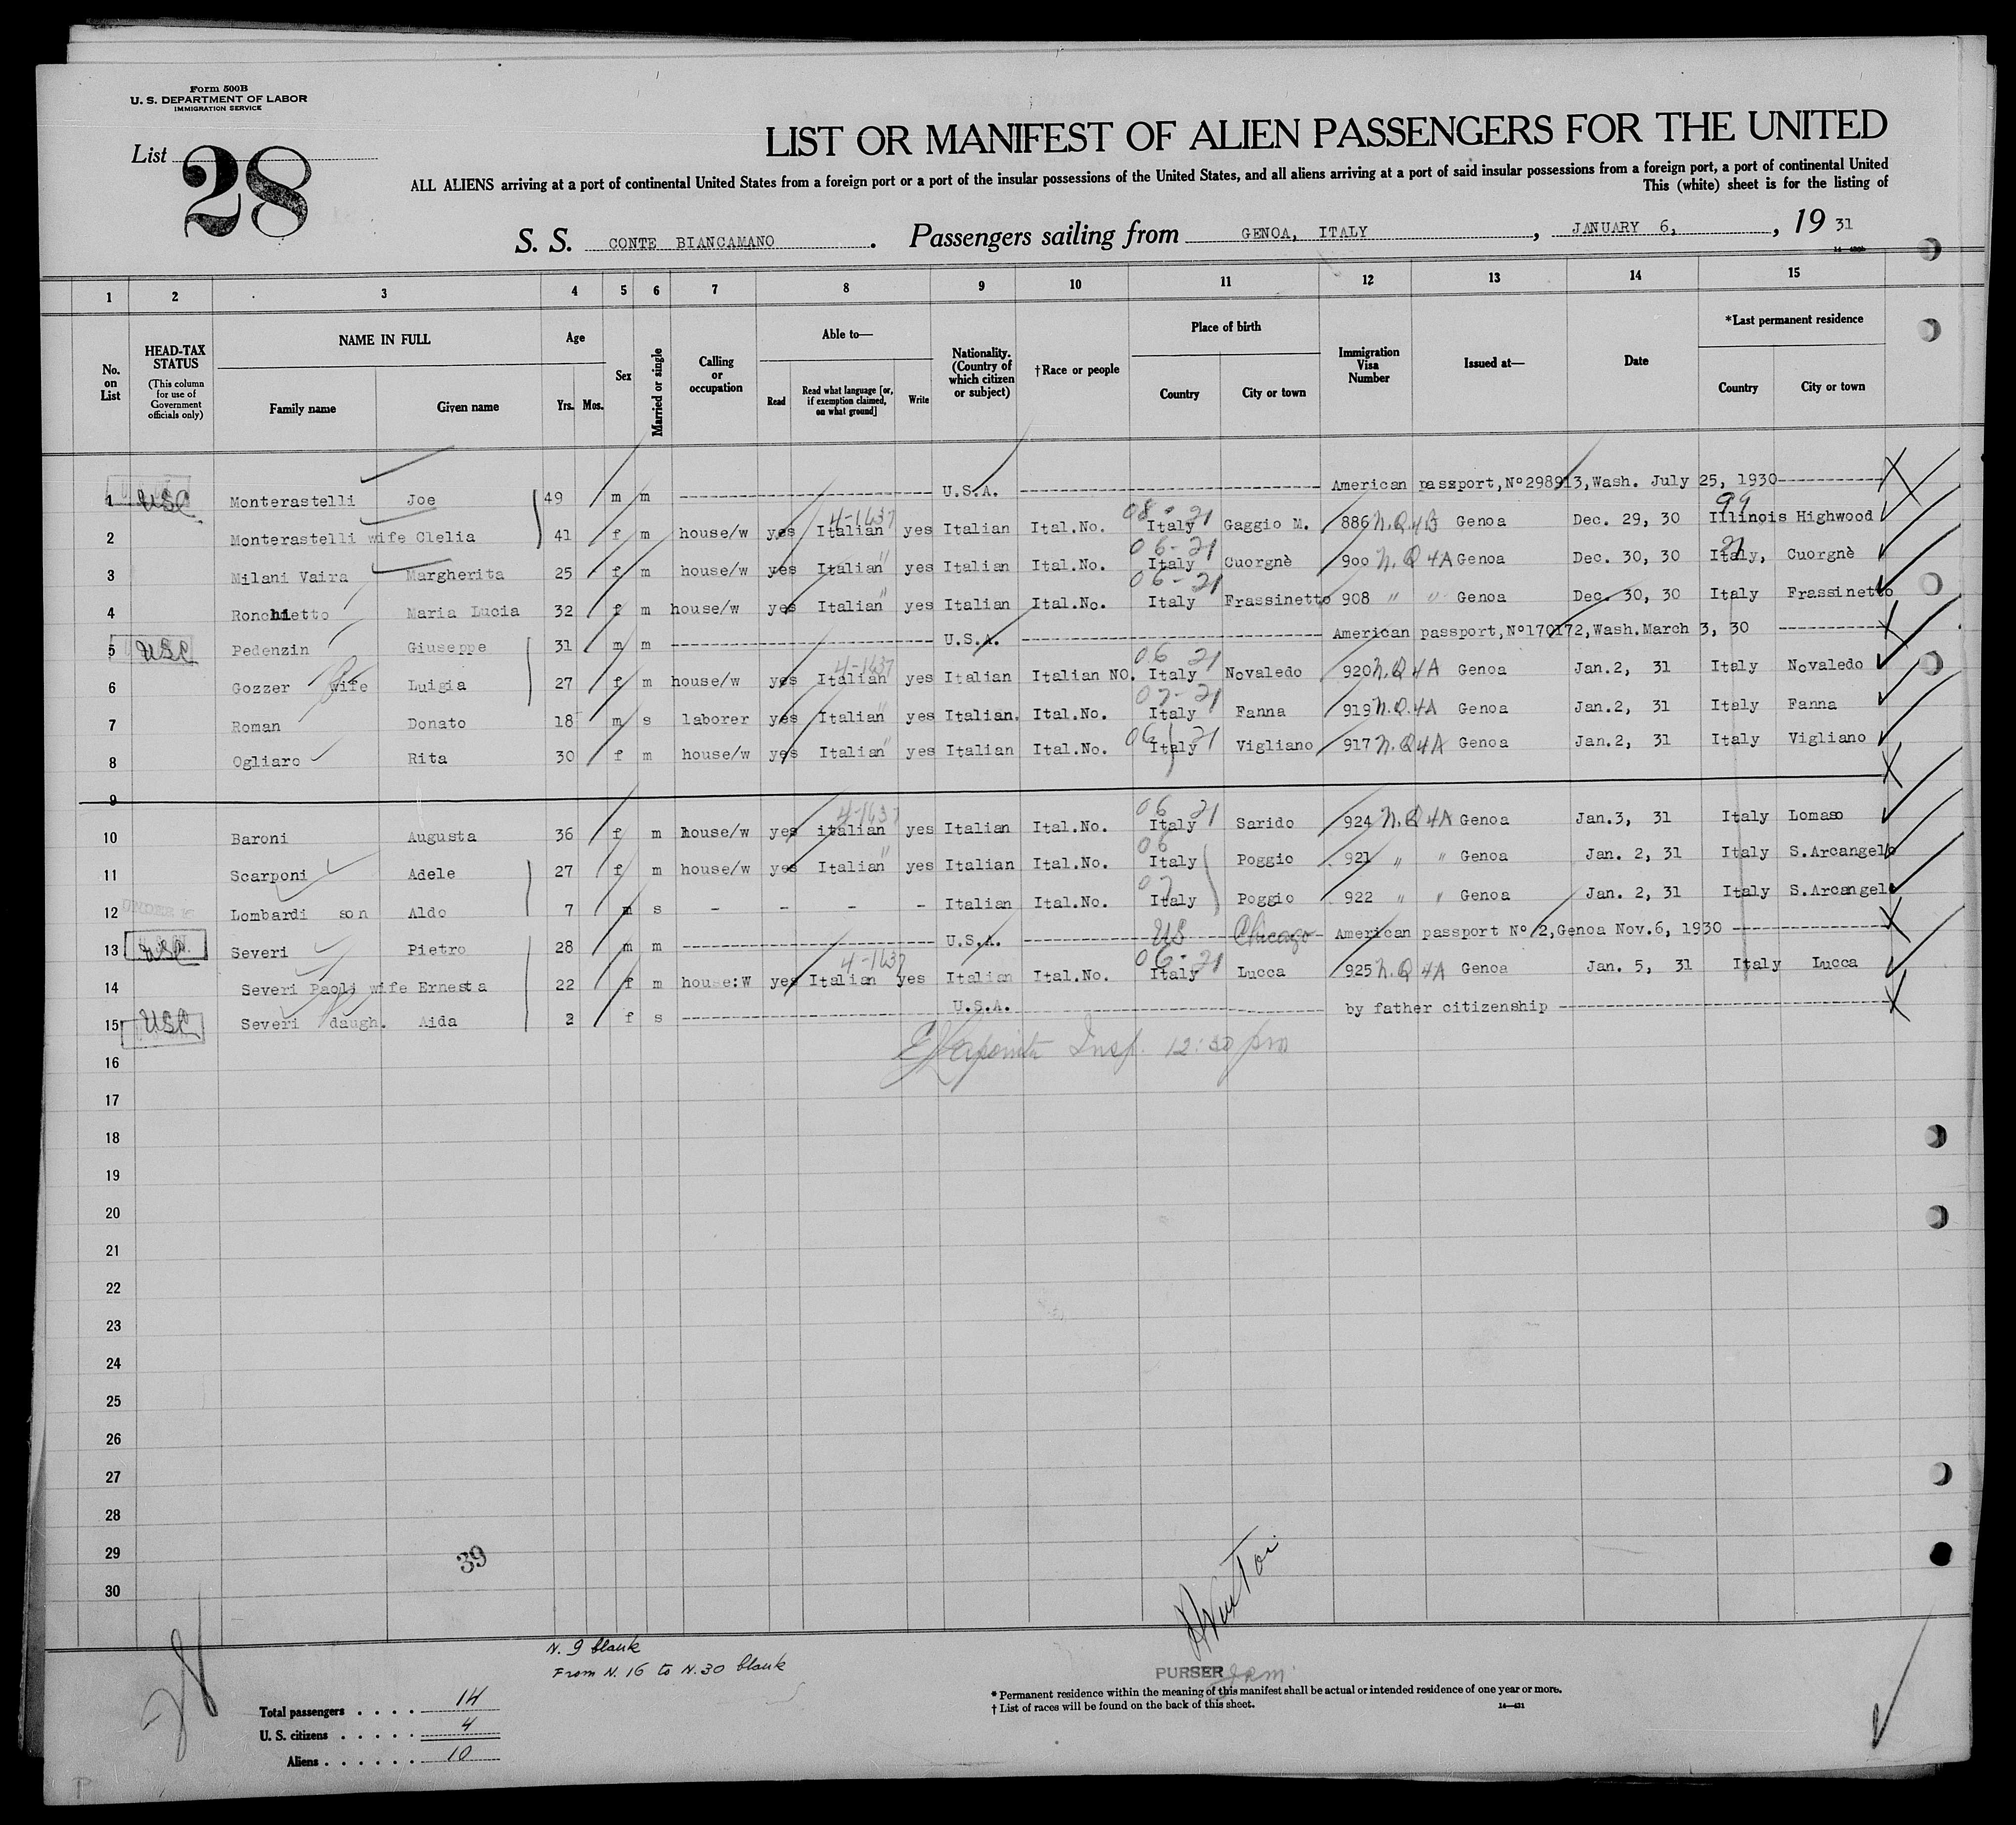 Form 500B
U. S. DEPARTMENT OF LABOR
IMMIGRATION SERVICE
List 28
LIST OR MANIFEST OF ALIEN PASSENGERS FOR THE UNITED
ALL ALIENS arriving at a port of continental United States from a foreign port or a port of the insular possessions of the United States, and all aliens arriving at a port of said insular possessions from a foreign port, a port of continental United
This (white) sheet is for the listing of
S. S. CONTE BIANCAMANO . Passengers sailing from GENOA, ITALY , JANUARY 6, , 19 31
1 2 3 4 5 6 7 8 9 10 11 12 13 14 15
No. on List
HEAD-TAX STATUS (This column for use of Government officials only)
NAME IN FULL Family name Given name
Age Yrs. Mos.
Sex
Married or single
Calling or occupation
Able to— Read Read what language [or, if exemption claimed, on what ground] Write
Nationality. (Country of which citizen or subject)
†Race or people
Place of birth Country City or town
Immigration Visa Number
Issued at—
Date
*Last permanent residence Country City or town
1 USC Monterastelli Joe 49 m m U.S.A. American passport, Nº298913, Wash. July 25, 1930
2 Monterastelli wife Clelia 41 f m house/w yes Italian 4-1637 yes Italian Ital.No. 08-21 Italy Gaggio M. 886 N.Q.4B Genoa Dec. 29, 30 99 Illinois Highwood
3 Milani Vaira Margherita 25 f m house/w yes Italian " yes Italian Ital.No. 06-21 Italy Cuorgnè 900 N.Q 4A Genoa Dec. 30, 30 21 Italy, Cuorgnè
4 Ronchietto Maria Lucia 32 f m house/w yes Italian " yes Italian Ital.No. 06-21 Italy Frassinetto 908 " " Genoa Dec. 30, 30 Italy Frassinetto
5 USC Pedenzin Giuseppe 31 m m U.S.A. American passport, Nº170172, Wash. March 3, 30
6 Gozzer wife Luigia 27 f m house/w yes Italian 4-1637 yes Italian Italian NO. 06 21 Italy Novaledo 920 N.Q 4A Genoa Jan.2, 31 Italy Novaledo
7 Roman Donato 18 m s laborer yes Italian " yes Italian. Ital.No. 07-21 Italy Fanna 919 N.Q.4A Genoa Jan.2, 31 Italy Fanna
8 Ogliaro Rita 30 f m house/w yes Italian " yes Italian Ital.No. 06 21 Italy Vigliano 917 N.Q 4A Genoa Jan.2, 31 Italy Vigliano
9
10 Baroni Augusta 36 f m house/w yes italian 4-1637 yes Italian Ital.No. 06 21 Italy Sarido 924 N.Q 4A Genoa Jan.3, 31 Italy Lomaso
11 Scarponi Adele 27 f m house/w yes Italian " yes Italian Ital.No. 06 Italy Poggio 921 " " Genoa Jan. 2, 31 Italy S.Arcangelo
12 UNDER 16 Lombardi son Aldo 7 m s - - - - Italian Ital.No. 07 Italy Poggio 922 " " Genoa Jan. 2, 31 Italy S.Arcangelo
13 USC Severi Pietro 28 m m U.S.A. US Chicago American passport Nº 2, Genoa Nov.6, 1930
14 Severi Paoli wife Ernesta 22 f m house:W yes Italian 4-1637 yes Italian Ital.No. 06-21 Italy Lucca 925 N.Q 4A Genoa Jan. 5, 31 Italy Lucca
15 USC Severi daugh. Aida 2 f s U.S.A. by father citizenship
Insp. 12:30 pm
16
17
18
19
20
21
22
23
24
25
26
27
28
29
30
39
N. 9 blank
From N. 16 to N. 30 blank
PURSER
Total passengers . . . . 14
U. S. citizens . . . . . 4
Aliens . . . . . . 10
* Permanent residence within the meaning of this manifest shall be actual or intended residence of one year or more.
† List of races will be found on the back of this sheet.
14—421